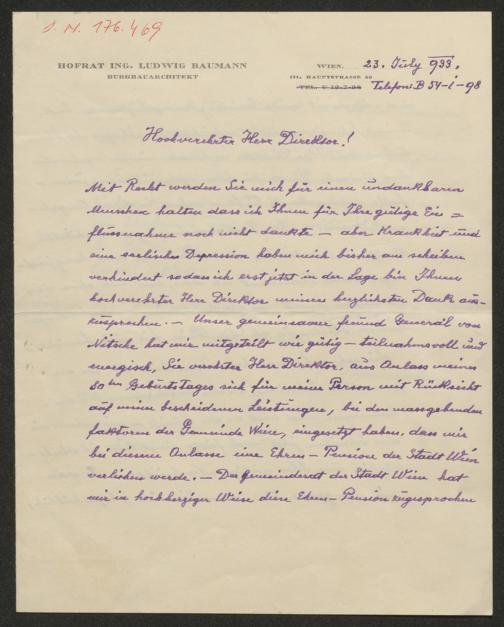 J. N. 176.469
HOFRAT ING. LUDWIG BAUMANN
BURGBAUARCHITEKT
WIEN, 23. July 933.
III. HAUPTSTRASSE
Telefon B 54-1-98
Hochverehrter Herr Direktor!
Mit Recht werden Sie mich für einen undankbaren
Menschen halten dass ich Ihnen für Ihre gütige Ein=
flussnahme noch nicht dankte – aber Krankheit und
eine seelische Depression haben mich bisher am schreiben
verhindert sodass ich erst jetzt in der Lage bin Ihnen
hochverehrter Herr Direktor meinen herzlichsten Dank aus-
zusprechen. – Unser gemeinsamer freund General von
Nitsche hat mir mitgeteilt wie gütig – teilnahmsvoll und
energisch, Sie verehrter Herr Direktor, aus Anlass meines
80ten Geburtstages sich für meine Person mit Rücksicht
auf meine bescheidenen Leistungen, bei den massgebenden
faktoren der Gemeinde Wien, eingesetzt haben, dass mir
bei diesem Anlasse eine Ehren – Pension der Stadt Wien
verliehen werde. – Der Gemeinderat der Stadt Wien hat
mir in hochherziger Weise diese Ehren – Pension zugesprochen